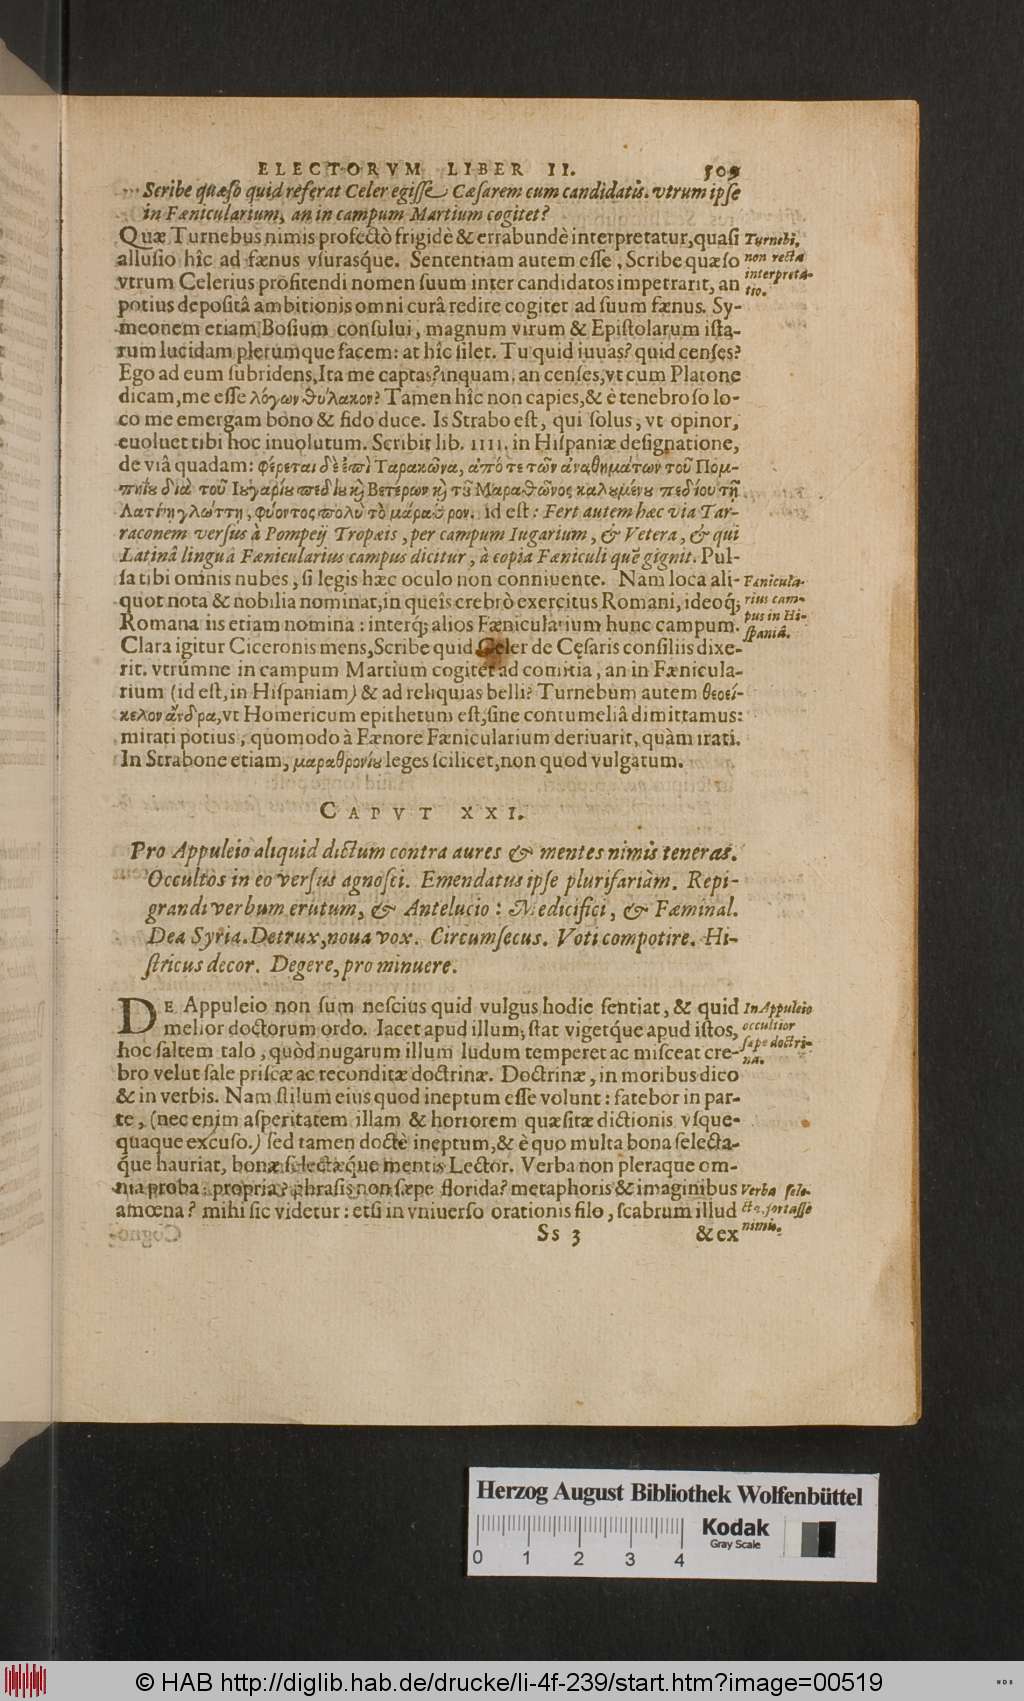 ELECTORVM LIBER II. 509
Scribe quæso quid referat Celer egisse Cæsarem cum candidatis. vtrum ipse
in Fænicularium, an in campum Martium cogitet?
Quæ Turnebus nimis profectò frigidè & errabundè interpretatur, quasi
allusio hîc ad fænus vsurasq́ue. Sententiam autem esse, Scribe quæso
vtrum Celerius profitendi nomen suum inter candidatos impetrarit, an
potius depositâ ambitionis omni curâ redire cogitet ad suum fænus. Sy-
meonem etiam Bosium consului, magnum virum & Epistolarum ista-
rum lucidam plerumque facem: at hîc silet. Tu quid iuuas? quid censes?
Ego ad eum subridens, Ita me captas? inquam. an censes, vt cum Platone
dicam, me esse λόγων θύλακον? Tamen hîc non capies, & è tenebroso lo-
co me emergam bono & fido duce. Is Strabo est, qui solus, vt opinor,
euoluet tibi hoc inuolutum. Scribit lib. IIII. in Hispaniæ designatione,
de viâ quadam: φέρεται δὲ ἐπὶ Ταρακῶνα, ἀπό τε τῶν ἀναθημάτων τοῦ Πομ-
πηίου διὰ τοῦ Ιουγαρίου πεδίου καὶ Βετέρων καὶ τοῦ Μαραθῶνος καλουμένου πεδίου τῇ
Λατίνῃ γλώττῃ, φύοντος πολὺ τὸ μάραθρον. id est: Fert autem hæc via Tar-
raconem versus à Pompeij Tropæis, per campum Iugarium, & Vetera, & qui
Latinâ linguâ Fænicularius campus dicitur, à copia Fæniculi quẽ gignit. Pul-
sa tibi omnis nubes, si legis hæc oculo non conniuente. Nam loca ali-
quot nota & nobilia nominat, in queîs crebrò exercitus Romani, ideoq́;
Romana iis etiam nomina: interq́; alios Fænicularium hunc campum.
Clara igitur Ciceronis mens, Scribe quid Celer de Cęsaris consiliis dixe-
rit. vtrúmne in campum Martium cogitet ad comitia, an in Fænicula-
rium (id est, in Hispaniam) & ad reliquias belli? Turnebum autem θεοεί-
κελον ἄνδρα, vt Homericum epithetum est, sine contumeliâ dimittamus:
mirati potius, quomodo à Fænore Fænicularium deriuarit, quàm irati.
In Strabone etiam, μαραθρονίου leges scilicet, non quod vulgatum.
Turnebi,
non recta
interpreta-
tio.
Fænicula-
rius cam-
pus in Hi-
spaniâ.
CAPVT XXI.
Pro Appuleio aliquid dictum contra aures & mentes nimis teneras.
Occultos in eo versus agnosci. Emendatus ipse plurifariàm. Repi-
grandi verbum erutum, & Antelucio: Medicifici, & Fæminal.
Dea Syria. Detrux, noua vox. Circumsecus. Voti compotire. Hi-
stricus decor. Degere, pro minuere.
DE Appuleio non sum nescius quid vulgus hodie sentiat, & quid
melior doctorum ordo. Iacet apud illum, stat vigetq́ue apud istos,
hoc saltem talo, quòd nugarum illum ludum temperet ac misceat cre-
bro velut sale priscæ ac reconditæ doctrinæ. Doctrinæ, in moribus dico
& in verbis. Nam stilum eius quod ineptum esse volunt: fatebor in par-
te, (nec enim asperitatem illam & horrorem quæsitæ dictionis vsque-
quaque excuso.) sed tamen doctè ineptum, & è quo multa bona selecta-
q́ue hauriat, bonæ selectæq́ue mentis Lector. Verba non pleraque om-
nia proba: propria? phrasis non sæpe florida? metaphoris & imaginibus
amœna? mihi sic videtur: etsi in vniuerso orationis filo, scabrum illud
In Appuleio
occultior
sæpe doctri-
na.
Verba sele-
cta, fortasse
nimis.
Ss 3 & ex
Herzog August Bibliothek Wolfenbüttel
Kodak
Gray Scale
0 1 2 3 4
© HAB http://diglib.hab.de/drucke/li-4f-239/start.htm?image=00519